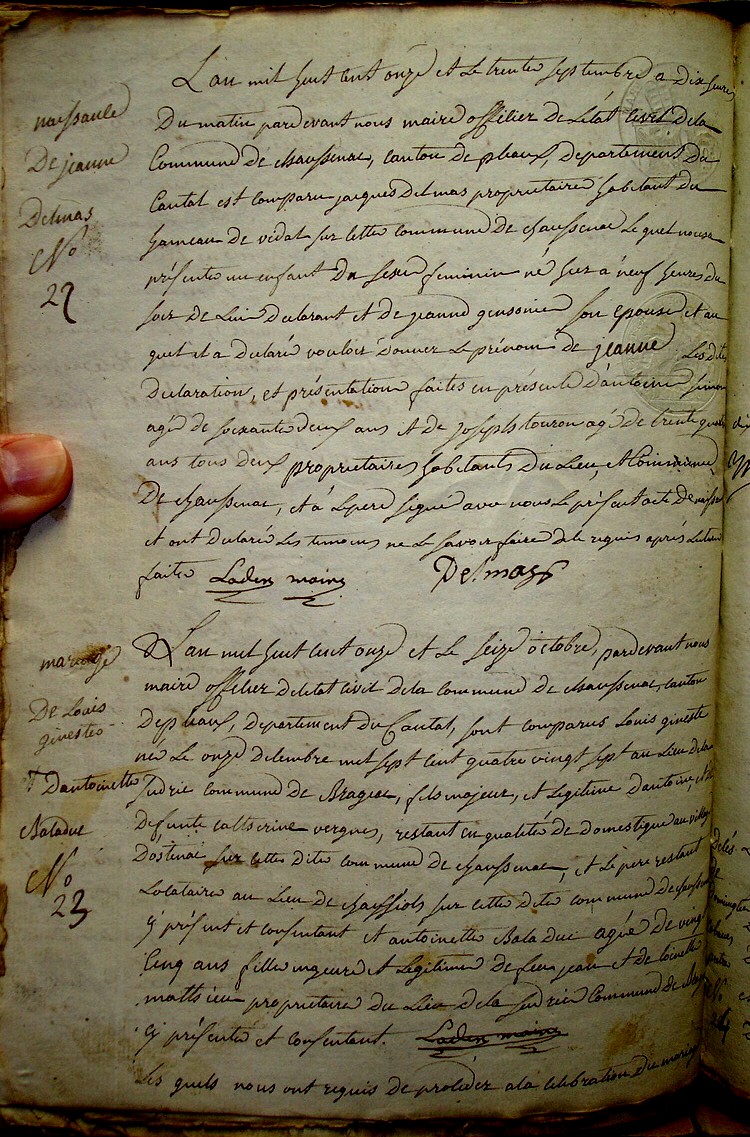 naissance
De jeanne
Delmas
N°
22
L'an mil huit cent onze et le trente septembre a dix heures
Du matin pardevant nous maire officier de L'état civil de la
Commune de chaussenac, canton de pleaux, département du
Cantal est comparu jacques Delmas propriétaire habitant du
hameau de vedat sur cette commune de chaussenac Lequel nous a
présenté un enfant Du sexe feminin né hier à neuf heures du
soir de Lui Declarant et de jeanne son epouse et au
quel il a declaré vouloir donner Le prénom de jeanne Les dites
declaration, et présentation faites en présence d'antoine
agé de soixante deux ans et de joseph touron agé de trente quatre
ans tous deux propriétaires habitants du Lieu, et Commune
De chaussenac, et à Le pere signé avec nous Le présent acte de naissance
et ont declaré Les temoins ne Le savoir faire de ce requis après Lecture
faite Laden maire Delmas
mariage
De Louis
gineste
et D'antoinette
Baladuc
N°
23
L'an mil huit cent onze et le seize octobre, pardevant nous
maire officier de létat civil de la commune de chaussenac, canton
de pleaux, departement du Cantal, sont comparus Louis gineste
né Le onze decembre mil sept cent quatre vingt sept au Lieu de la
sudrie commune de Brageac, fils majeur, et Legitime d'antoine, et de
defunte catherine vergnes, restant en qualité de domestique au village
D'ostenac sur cette dite commune de chaussenac, et Le pere restant
Locataire au Lieu de chassiols sur cette dite commune de chaussenac
cy présent et consentant et antoinette Baladuc agée de vingt
Cinq ans fille majeure et Legitime de feu jean et de toinette
mathieu propriétaire du Lieu de la sudrie Commune de Brageac
cy présente et consentant. Laden maire
Les quels nous ont requis de proceder a la celebration du mariage